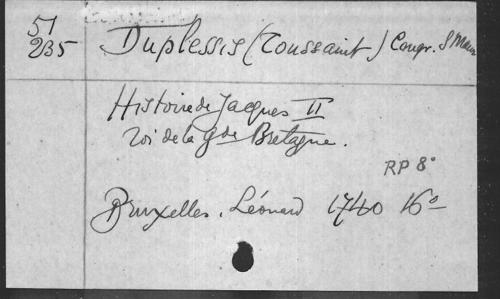 51
235
Duplessis (Toussaint) Congr. S Maur
Histoire de Jacques II
roi de la Gde Bretagne.
RP 8°
Bruxelles, Léonard 1740 16°